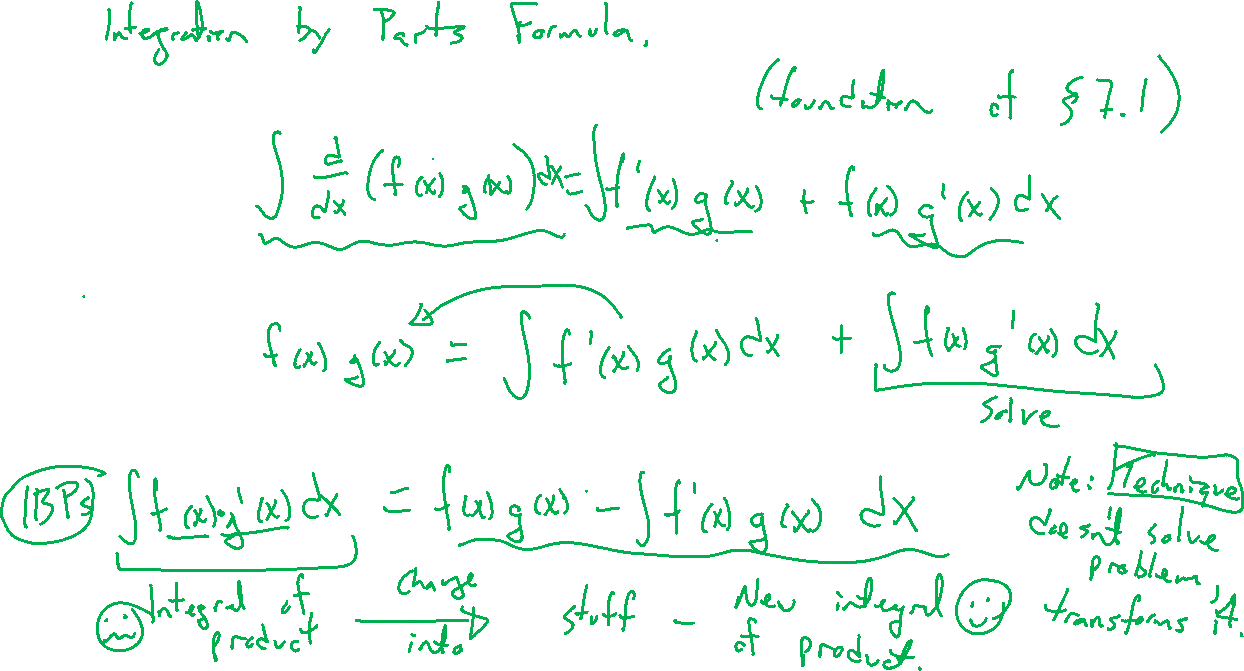 Integration by Parts Formula.
(foundation of §7.1)
∫ d/dx (f(x) g(x)) dx = ∫ f'(x) g(x) + f(x) g'(x) dx
f(x) g(x) = ∫ f'(x) g(x) dx + ∫ f(x) g'(x) dx
solve
IBPs ∫ f(x)·g'(x) dx = f(x) g(x) - ∫ f'(x) g(x) dx
Integral of product change into stuff - New integral of product.
Note: Technique
doesn't solve
problem,
transforms it.